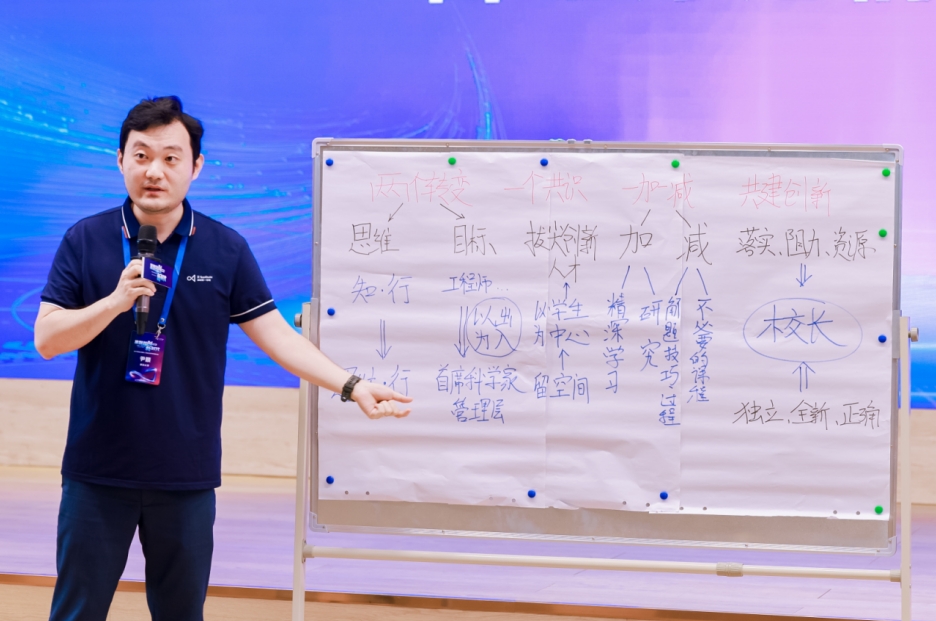 两个转变 一个共识 一加一减 共建创新
思维 目标 拔尖创新 加 减 落实、阻力、资源
人才
知·行 工程师... 以学生
为中心 精深学习 研究 解题技巧过程 不必要的课程
以出
为入
校长
行 首席科学家
管理层
留空间
独立、全新、正确